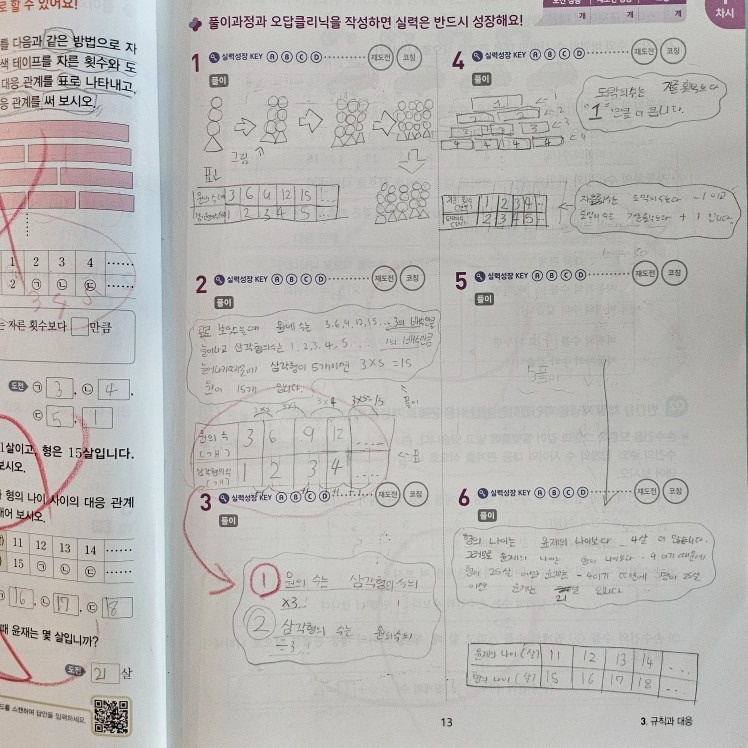 로 할 수 있어요!
를 다음과 같은 방법으로 자
색 테이프를 자른 횟수와 도
대응 관계를 표로 나타내고,
응 관계를 써 보시오.
1 2 3 4 ……
2 ㉠ ㉡ ㉢ ……
3 4 5
는 자른 횟수보다 □만큼
도전 ㉠ 3 , ㉡ 4 ,
㉢ 5 , 1
1살이고, 형은 15살입니다.
보시오.
형의 나이 사이의 대응 관계
내어 보시오.
11 12 13 14 ……
15 ㉠ ㉡ ㉢ ……
㉠ 16 , ㉡ 17 , ㉢ 18
때 윤재는 몇 살입니까?
도전 21 살
드를 스캔하여 답안을 입력하세요.
풀이과정과 오답클리닉을 작성하면 실력은 반드시 성장해요!
개 개 개
차시
1 실력성장 KEY A B C D 재도전 코칭
풀이
그림
표↓
원의 수 3 6 9 12 15 …
1 2 3 4 5 …
2 실력성장 KEY A B C D 재도전 코칭
풀이
원의 수는 3, 6, 9, 12, 15 … 3의 배수만큼
늘어나고 삼각형의 수는 1, 2, 3, 4, 5
삼각형이 5개이면 3×5=15
원이 15개 입니다.
풀이
3×4 3×5=15
원의 수 (개) 3 6 9 12 ……
삼각형의 수 (개) 1 2 3 4 ……
←표
3 실력성장 KEY A B C D 재도전 코칭
풀이
① 원의 수는 삼각형 수의
×3
② 삼각형의 수는 원의 수의
÷3
4 실력성장 KEY A B C D 재도전 코칭
풀이
1 ← 1
2 2 ← 2
3 ← 3
4 4 4 4 ← 4
도막의 수는 자른 횟수보다
"1" 만큼 더 큽니다.
자른 횟수 1 2 3 4 …
2 3 4 5 …
자른 횟수는 도막의 수보다 -1 이고
도막의 수는 자른 횟수보다 +1 입니다.
5 실력성장 KEY A B C D 재도전 코칭
풀이
6 실력성장 KEY A B C D 재도전 코칭
풀이
형의 나이는 윤재의 나이보다 4살 더 많습니다.
그러므로 윤재의 나이는 형의 나이보다 -4 이기 때문에
형이 25살 이면 윤재는 -4이기 때문에 형이 25살
이면 윤재는 21살 입니다.
윤재의 나이(살) 11 12 13 14 …
형의 나이(살) 15 16 17 18 …
13
3. 규칙과 대응